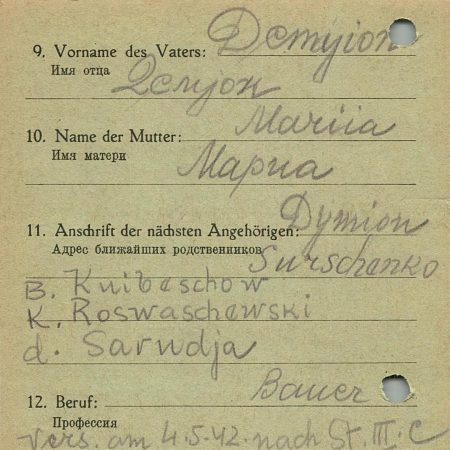 9. Vorname des Vaters: Demyion
Имя отца
10. Name der Mutter: Mariia
Имя матери Мариа
11. Anschrift der nächsten Angehörigen: Dymion
Адрес ближайших родственников Surschenko
B. Knibeschow
K. Roswaschewski
d. Sarudja
12. Beruf: Bauer
Профессия
vers. am 4.5.42. nach St. III. C